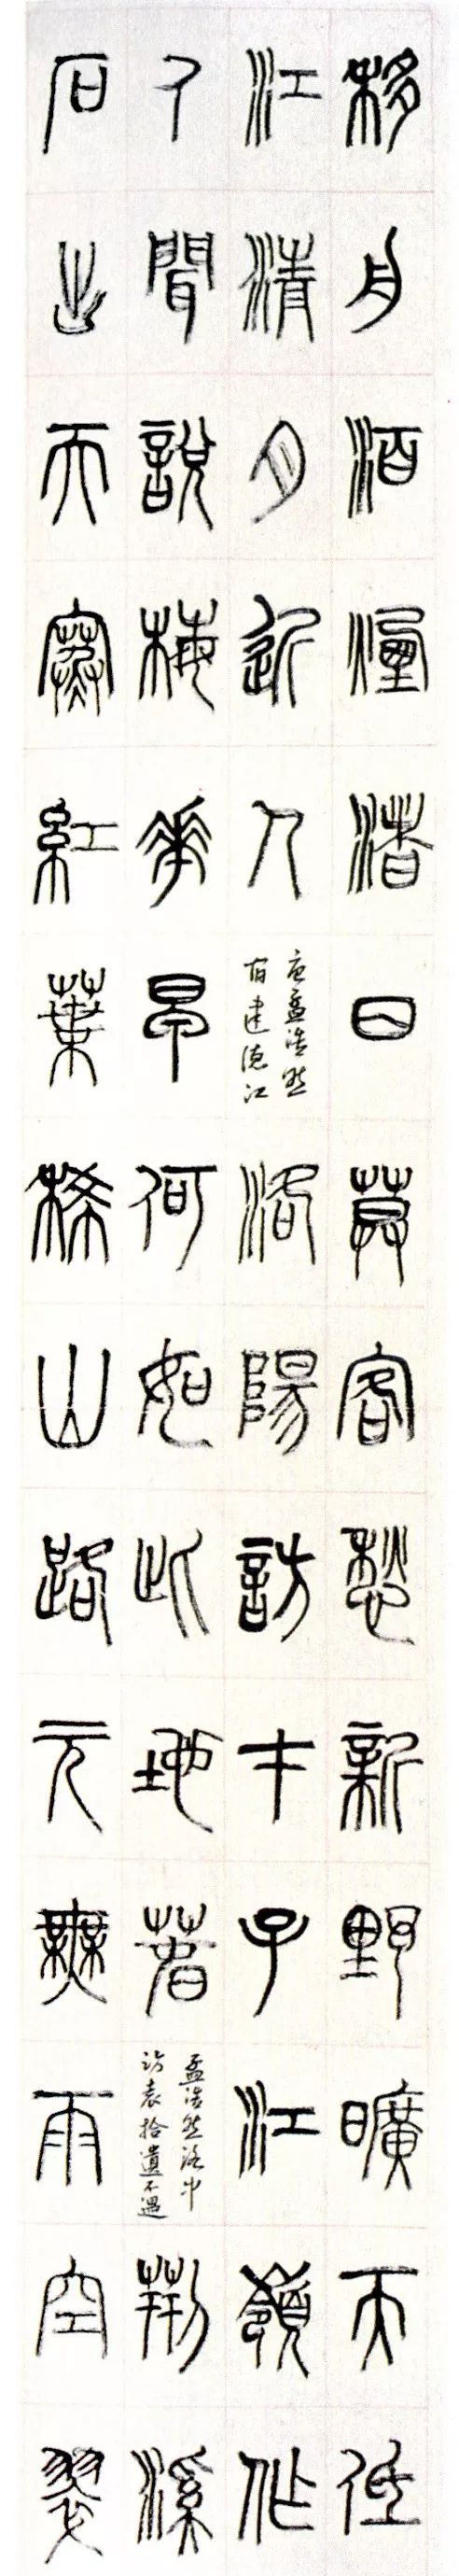 移舟泊煙渚日暮客愁新野曠天低
江清月近人
唐孟浩然
宿建德江
洛陽訪才子江嶺作
人聞說梅花早何如此地春
孟浩然洛中
訪袁拾遺不遇
荊溪
石出天寒紅葉稀山路元無雨空翠